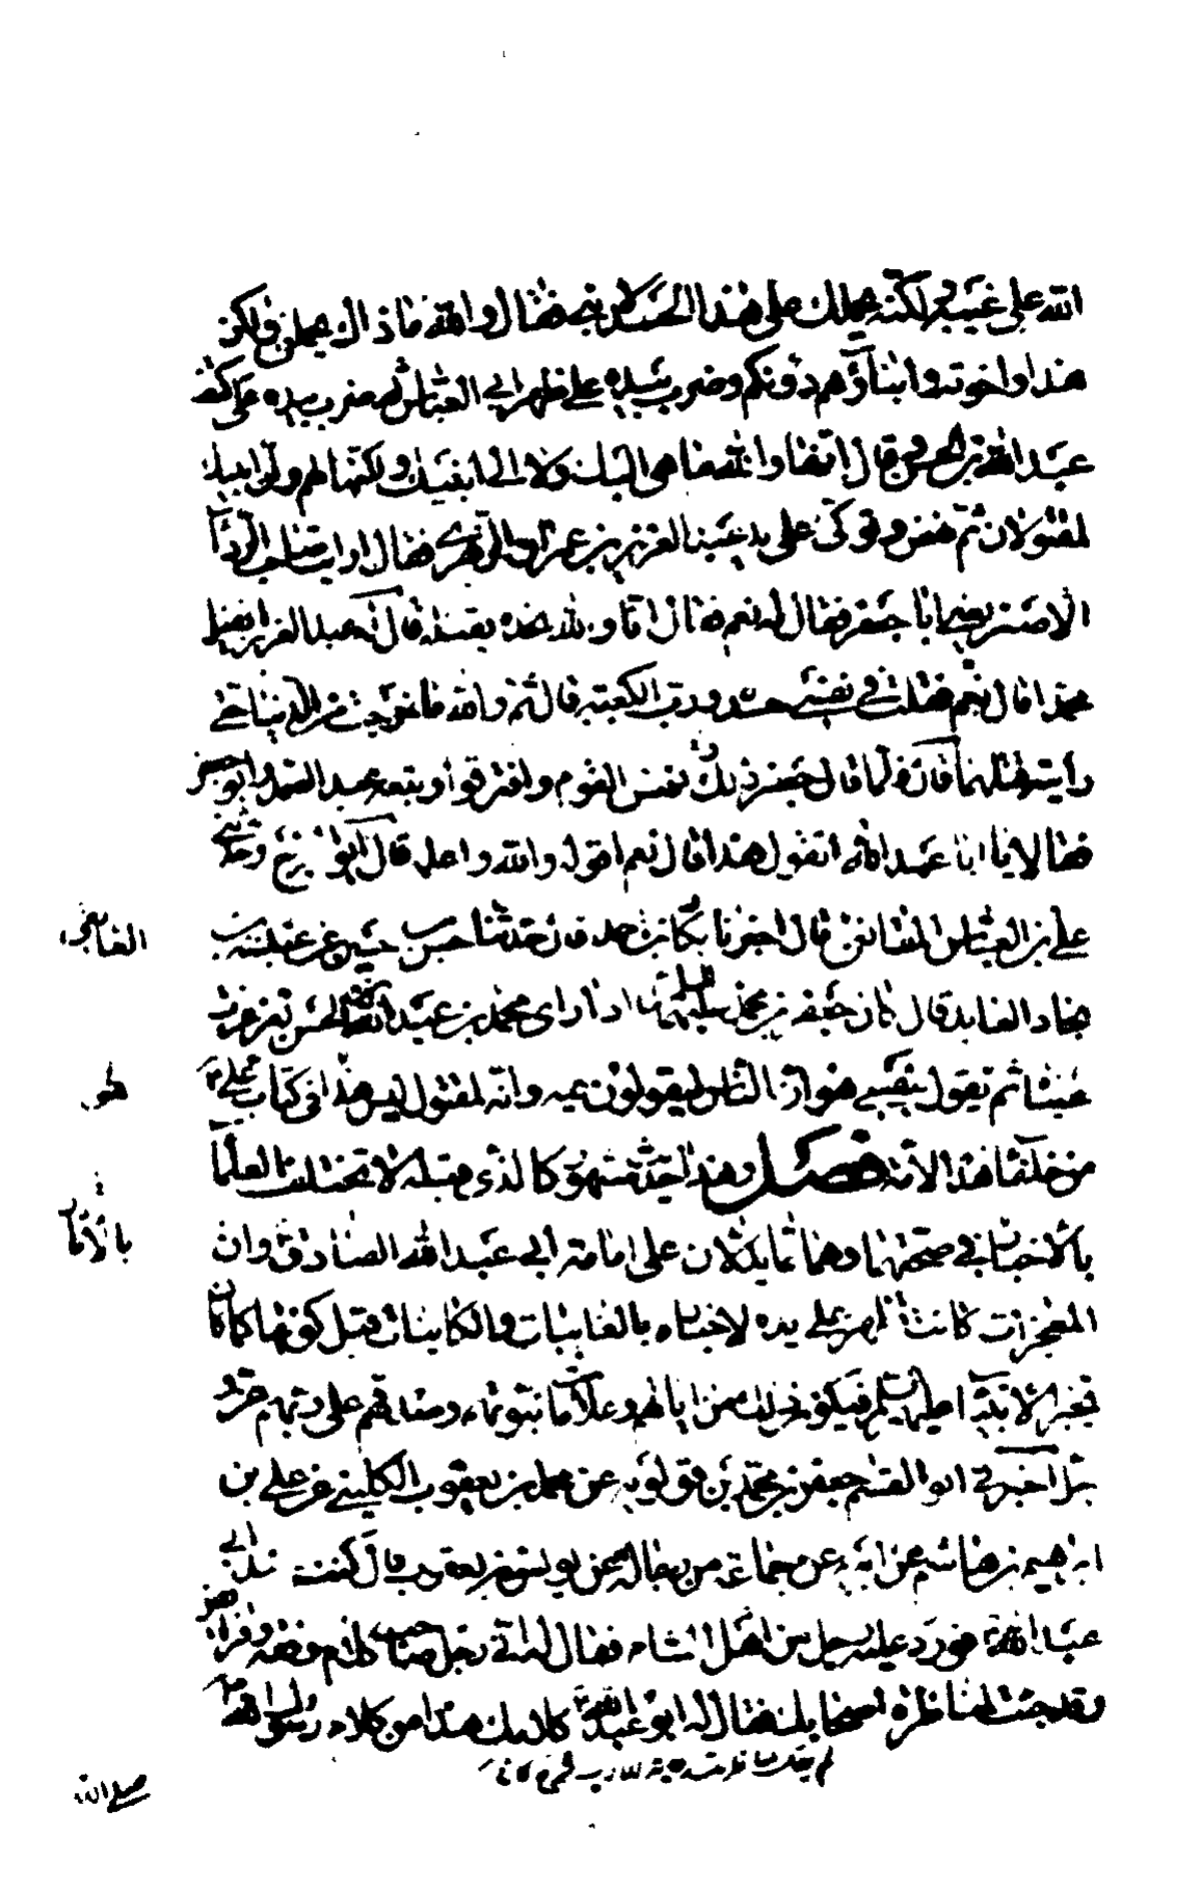 الله على غيبه ولكنه يحملك على هذا الحسد لابني فقال والله ما ذاك يحملني ولكن
هذا واخوته وابناؤهم دونكم وضرب بيده على ظهر ابي العباس ثم ضرب بيده على كتف
عبد الله بن الحسن وقال انها والله ما هي اليك ولا الى ابنيك ولكنها لهم وان ابنيك
لمقتولان ثم نهض وتوكى على يد عبد العزيز بن عمران الزهري فقال ارايت صاحب الرداء
الاصفر يعني ابا جعفر فقال له نعم فقال انا والله نجده يقتله قال له عبد العزيز ايقتل
محمدا قال نعم فقلت في نفسي حسده ورب الكعبة قال ثم والله ما خرجت من الدنيا حتى
رايته قتلهما قال فلما قال جعفر ذلك نهض القوم وافترقوا وتبعه عبد الصمد وابو جعفر
فقالا يا ابا عبد الله اتقول هذا قال نعم اقوله والله واعلمه قال ابو الفرج وحدثني
علي بن العباس المقانعي قال اخبرنا بكار بن احمد قال حدثنا حسن بن حسين عن عنبسة بن
بجاد العابد قال كان جعفر بن محمد عليهما السلام اذا راى محمد بن عبد الله بن الحسن تغرغرت
عيناه ثم يقول بنفسي هو ان الناس ليقولون فيه وانه لمقتول ليس هذا في كتاب علي
من خلفاء هذه الامة فصل وهذا حديث مشهور كالذي قبله لا تختلف العلماء
بالاخبار في صحتهما وهما مما يدلان على امامة ابي عبد الله الصادق وان
المعجزات كانت تظهر على يده لاخباره بالغائبات والكائنات قبل كونها كما كان
يخبر الانبياء عليهم السلم فيكون ذلك من اياتهم وعلامات نبوتهم وصدقهم على ربهم عز و
جل اخبرني ابو القسم جعفر بن محمد بن قولويه عن محمد بن يعقوب الكليني عن علي بن
ابراهيم بن هاشم عن ابيه عن جماعة من رجاله عن يونس بن يعقوب قال كنت عند ابي
عبد الله فورد عليه رجل من اهل الشام فقال له اني رجل صاحب كلام وفقه وفرائض
وقد جئت لمناظرة اصحابك فقال له ابو عبد الله كلامك هذا من كلام رسول الله
صلى الله